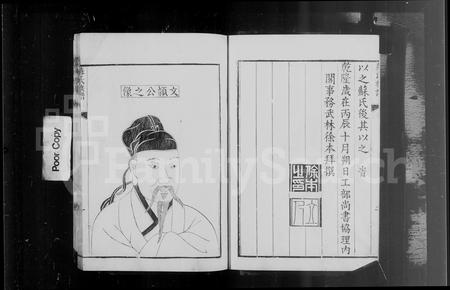 以之蘇氏後其以之
乾隆歲在丙辰十月朔日工部尚書協理內
閣事務武林徐本拜撰
徐本之印
公之像
Poor Copy
FamilySearch